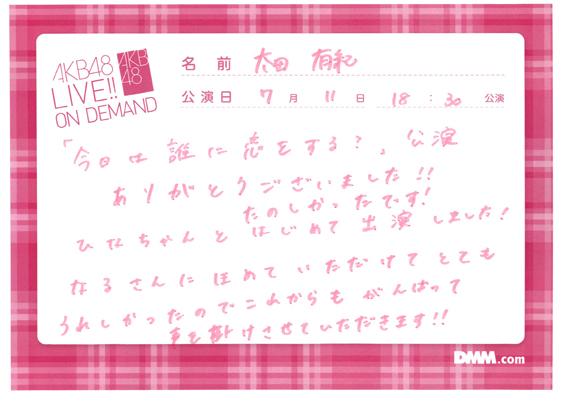 AKB48
LIVE!!
ON DEMAND
AKB
48
名前 太田 有紀
公演日 7月 11日 18:30 公演
「今日は誰に恋をする?」公演
ありがとうございました!!
たのしかったです!
ひなちゃんとはじめて出演しました!
なるさんにほめていただけてとても
うれしかったのでこれからもがんばって
声を掛けさせていただきます!!
DMM.com